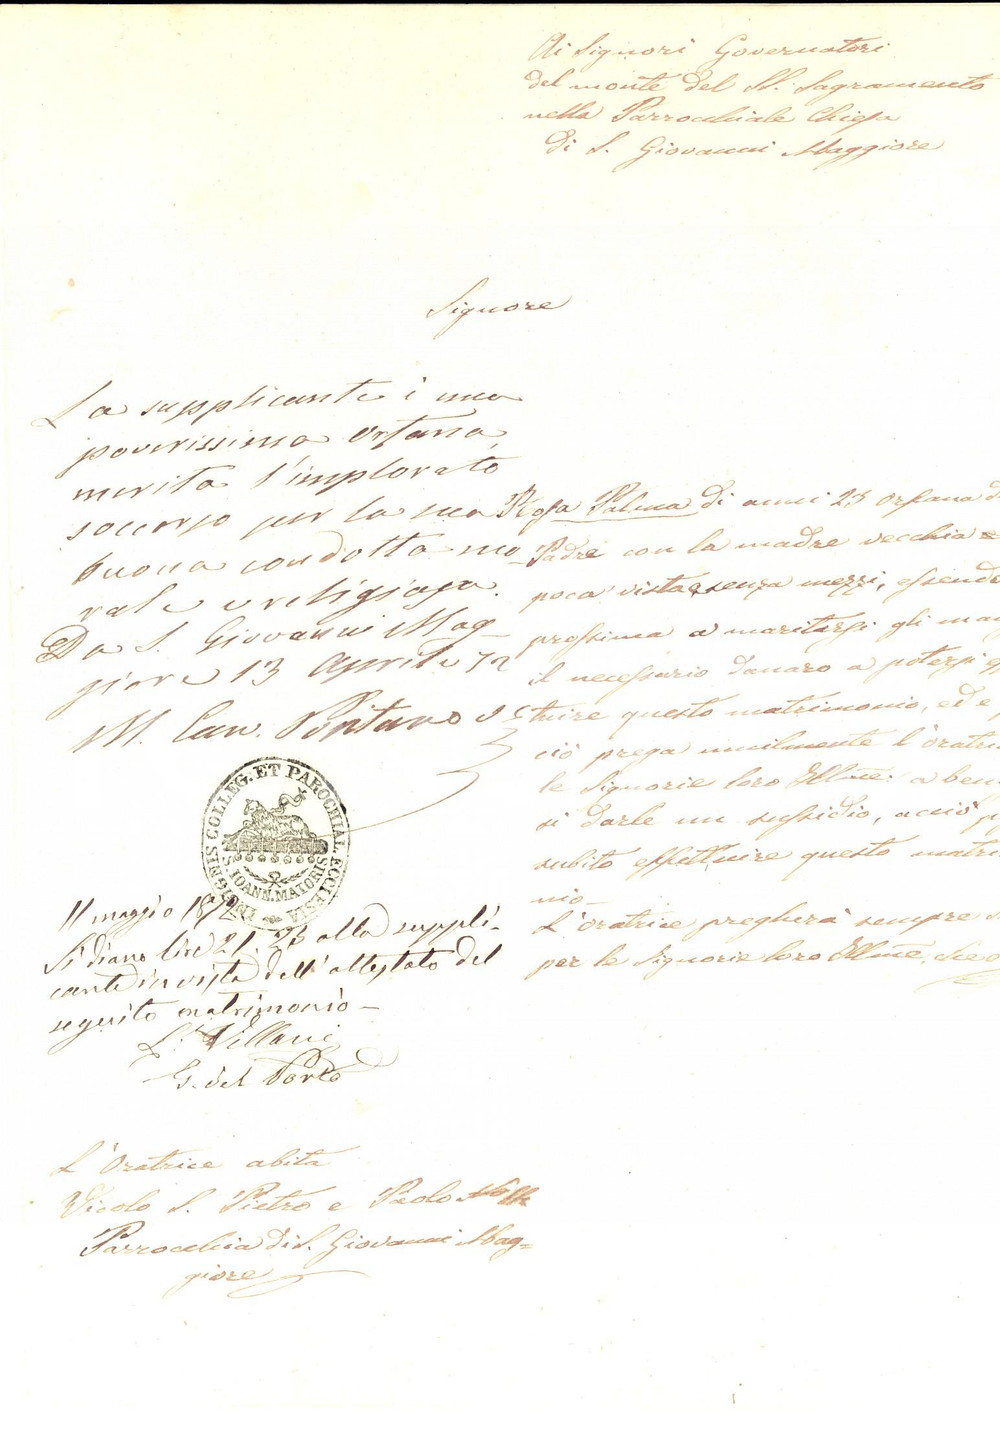 Ai Signori Governatori
del monte del SS. Sagramento
nella Parrocchiale Chiesa
di S. Giovanni Maggiore
Signore
La supplicante è una
poverissima orfana,
merita l'implorato
soccorso per la sua
buona condotta mo
rale e religiosa.
Da S. Giovanni Mag-
giore 13 Aprile 72
M. Can. Pontano
INSIGNIS COLLEG. ET PAROCHIAL. ECCLESIA
S. IOANN. MAIORIS
11 maggio 1872
Si diano lire 21.23 alla suppli-
cante in vista dell'attestato del
seguito matrimonio
L. Villani
G. del Porto
Rosa Palma di anni 23 orfana di
Padre con la madre vecchia e
poca vista e senza mezzi, essendo
prossima a maritarsi gli man
il necessario danaro a potersi
tuire questo matrimonio, ed e p
ciò prega umilmente l'oratri
le Signorie loro Ellme: a beni
si darle un sussidio, acciò p
subito effettuire questo matri
nio-
L'oratrice pregherà sempre
per le Signorie loro Ellme,
L'Oratrice abita
Vicolo S. Pietro e Paolo No
Parrocchia di S. Giovanni Mag=
giore